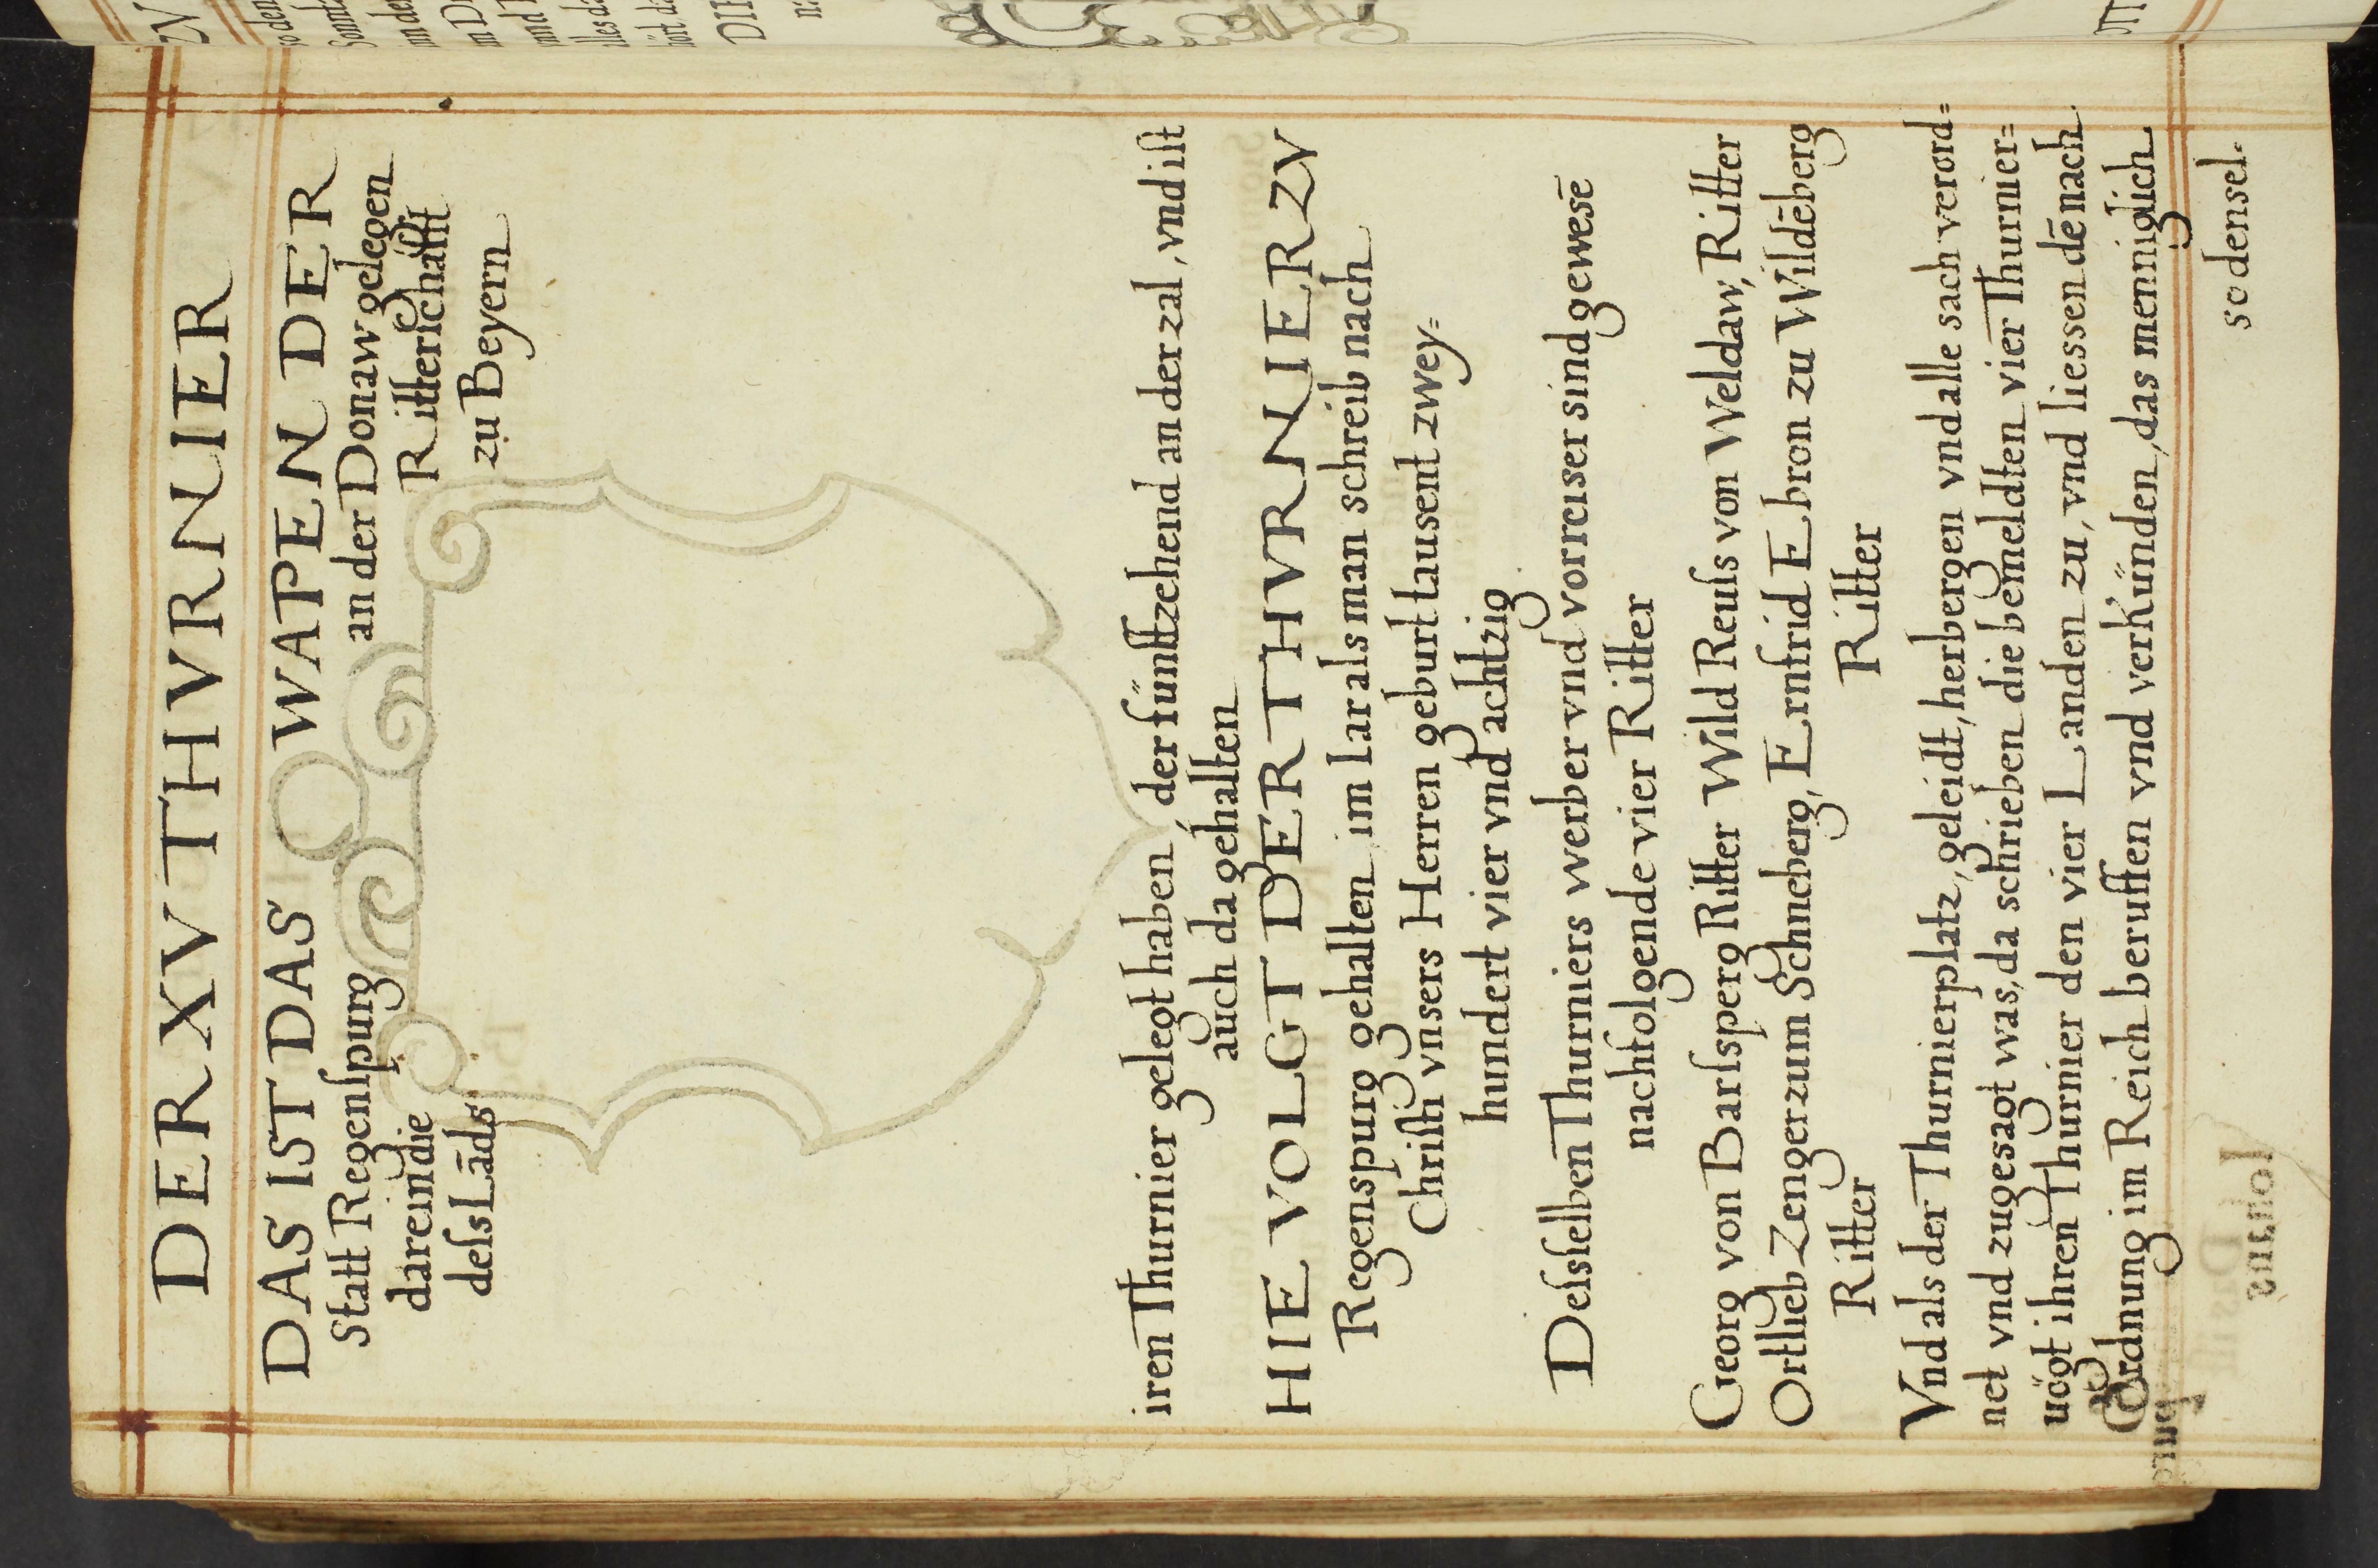 DER XV THVRNIER
DAS IST DAS WAPEN DER
Statt Regenſpurg an der Donaw gelegen
darein die Ritterſchafft
deſs Lāds zu Beyern
iren Thurnier gelegt haben, der fünfftzehend an der zal, vnd iſt
auch da gehalten
HIE VOLGT DER THVRNIER ZV
Regenspurg gehalten im Iar als man schreib nach
Chriſti vnsers Herren geburt tausent zwey=
hundert vier vnd achtzig
Deſsſelben Thurniers werber vnd vorreuser sind gewesē
nachfolgende vier Ritter
Georg von Barſsperg Ritter Wild Reuſs von Weldaw, Ritter
Ortlieb Zenger zum Schneberg, Ernfrid Ebron zu Wildēberg
Ritter Ritter
Vnd als der Thurnierplatz, geleidt, herbergen vnd alle sach verord=
net vnd zugesagt was, da schrieben die bemeldten vier Thurnier=
uögt ihren Thurnier den vier Landen zu, vnd liessen dē nach
Ordnung im Reich beruffen vnd verkünden, das menniglich
so densel=